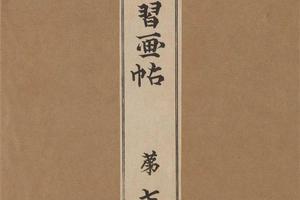 習画帖
第七